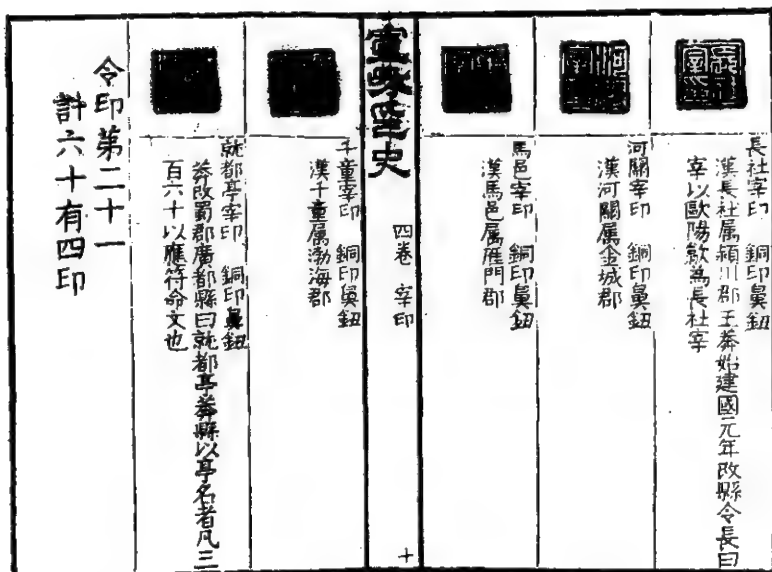 長社宰印 銅印鼻鈕
漢長社属潁川郡王莽始建國元年改縣令長曰
宰以歐陽歙為長社宰
河關宰印 銅印鼻鈕
漢河關属金城郡
馬邑宰印 銅印鼻鈕
漢馬邑属雁門郡
宣和印史
四卷 宰印
十
千童宰印 銅印鼻鈕
漢千童属渤海郡
就都亭宰印 銅印鼻鈕
莽改蜀郡廣都縣曰就都亭莽縣以亭名者凡三
百六十以應符命文也
令印第二十一
計六十有四印